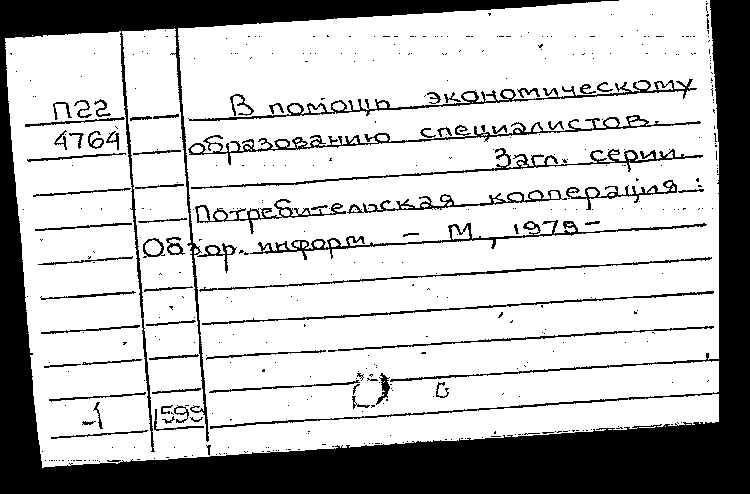 П22 В помощь экономическому
4764 образованию специалистов.
Загл. серии.
Потребительская кооперация:
Обзор. информ. – М., 1978 –
-1 1599